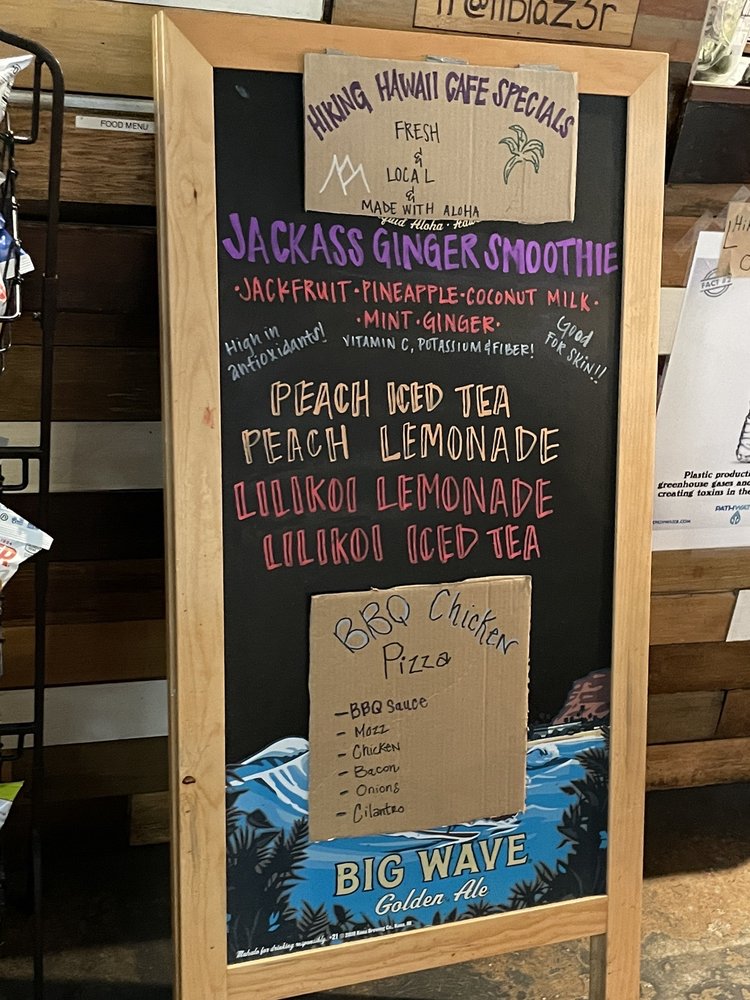 FOOD MENU
HIKING HAWAII CAFE SPECIALS
FRESH
&
LOCAL
&
MADE WITH ALOHA
JACKASS GINGER SMOOTHIE
·JACKFRUIT·PINEAPPLE·COCONUT MILK·
·MINT·GINGER·
High in antioxidants!
VITAMIN C, POTASSIUM & FIBER!
Good FOR SKIN!!
PEACH ICED TEA
PEACH LEMONADE
LILIKOI LEMONADE
LILIKOI ICED TEA
BBQ Chicken
Pizza
- BBQ Sauce
- Mozz
- Chicken
- Bacon
- Onions
- Cilantro
BIG WAVE
Golden Ale
Mahalo for drinking responsibly.
Kona Brewing Co., Kona, HI
FACT #2
Plastic product
greenhouse gases and
creating toxins in the
PATHWATER